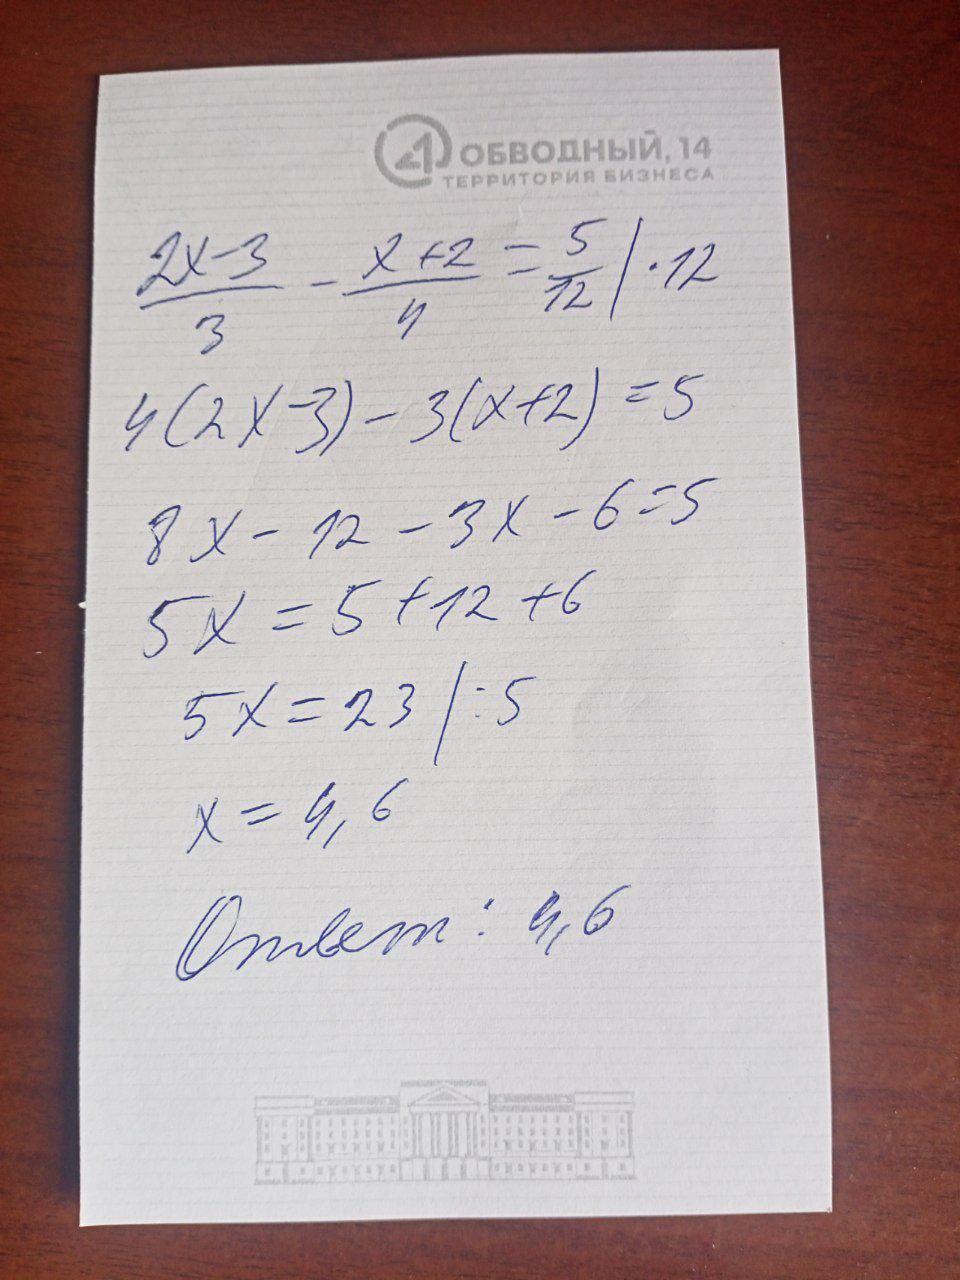 ОБВОДНЫЙ, 14
ТЕРРИТОРИЯ БИЗНЕСА
(2x-3)/3 - (x+2)/4 = 5/12 | · 12
4(2x-3) - 3(x+2) = 5
8x - 12 - 3x - 6 = 5
5x = 5 + 12 + 6
5x = 23 | : 5
x = 4,6
Ответ: 4,6